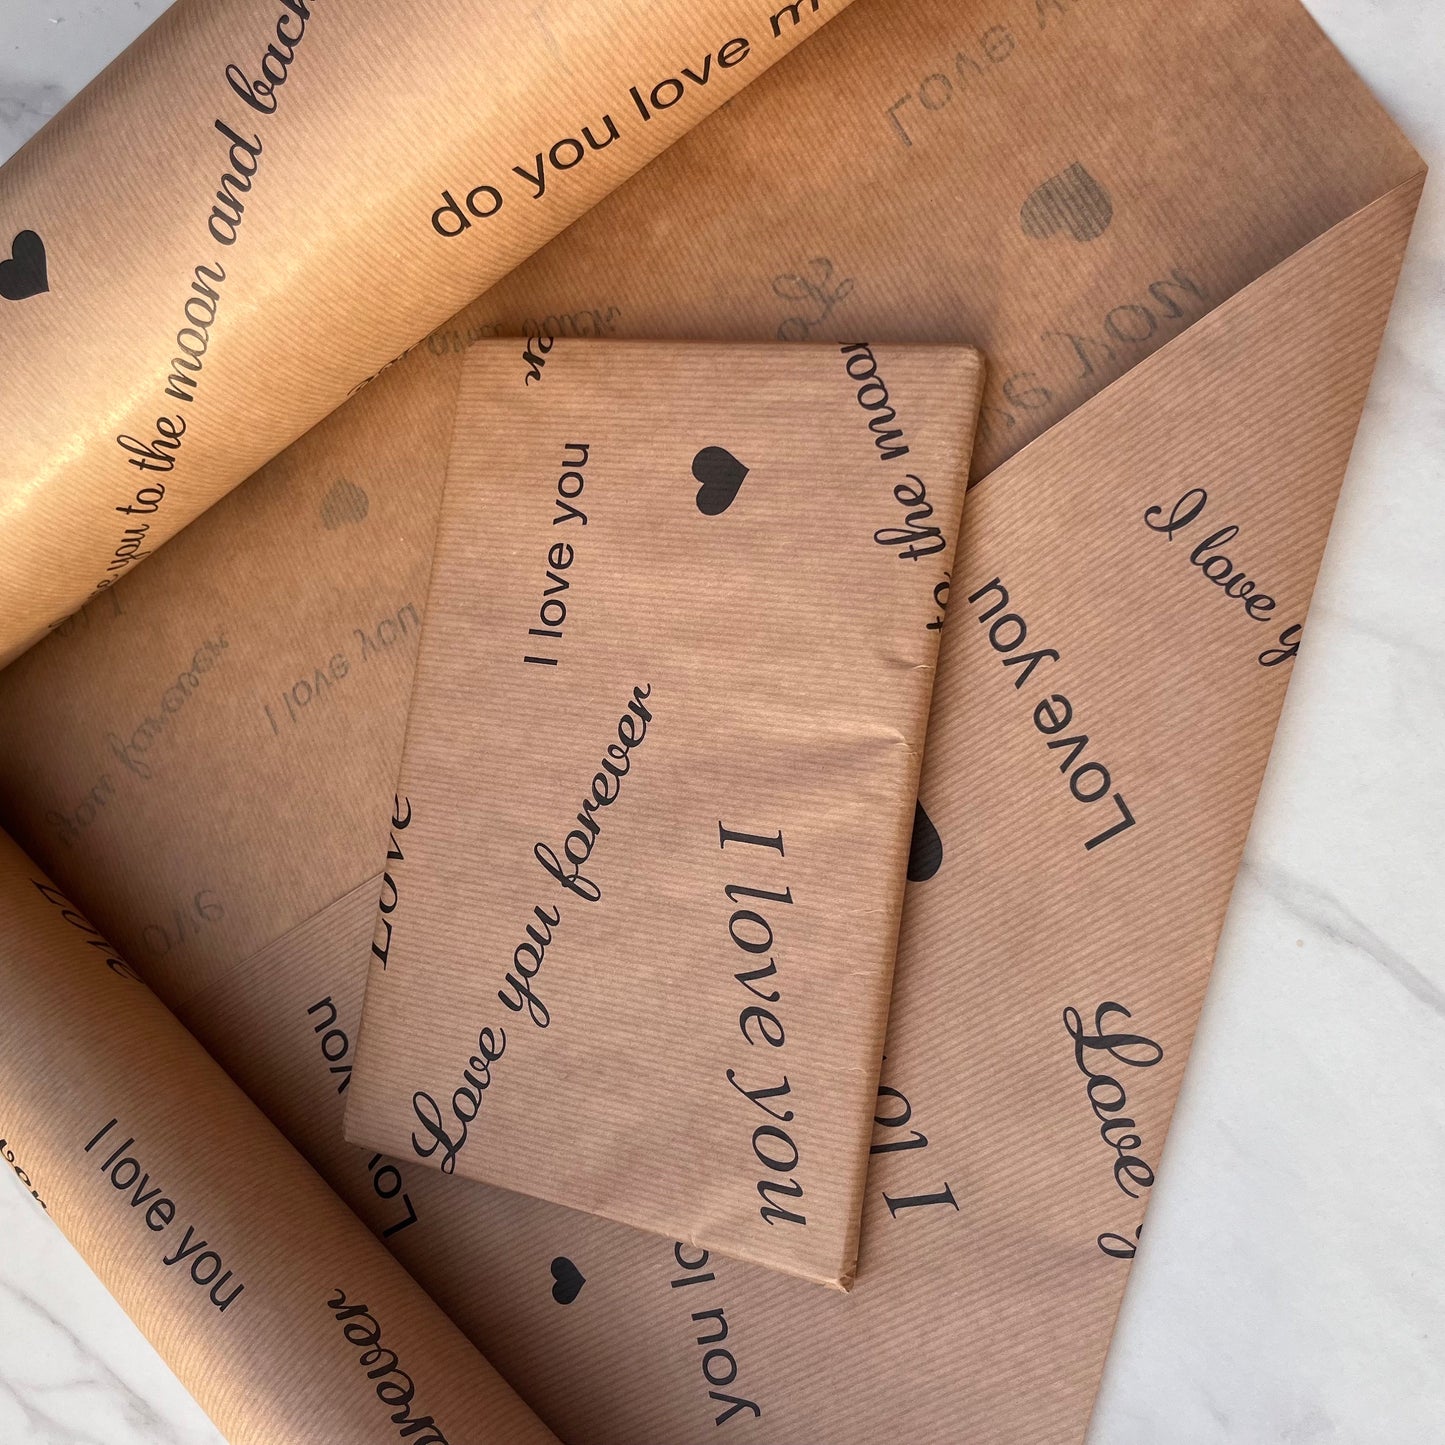 you to the moon and back
do you love
Love
you
and back
I love you
forever
I love you
the moon
I love you
Love you forever
I love you
I love
Love you
Love
Love
you
I love you
forever
you
I